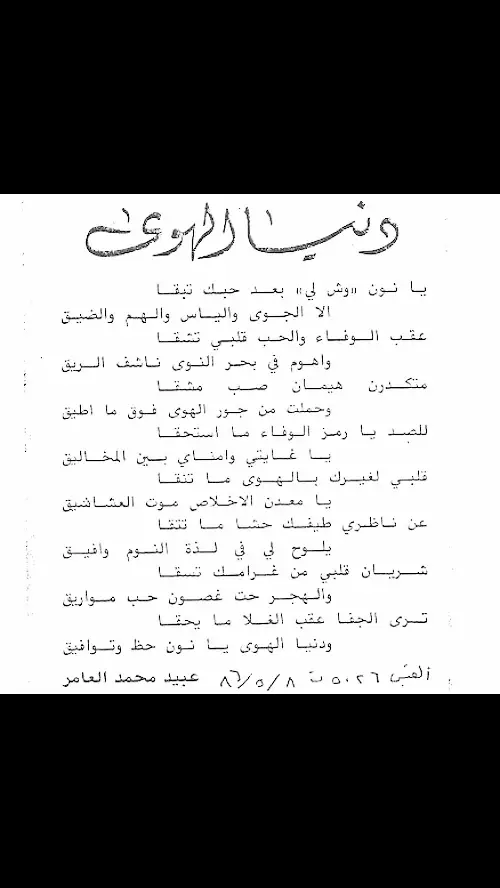 دنيا الهوى
يا نون «وش لي» بعد حبك تبقا
الا الجوى والياس والهم والضيق
عقب الوفاء والحب قلبي تشقا
واهوم في بحر النوى ناشف الريق
متكدرن هيمان صب مشقا
وحملت من جور الهوى فوق ما اطيق
للصد يا رمز الوفاء ما استحقا
يا غايتي وامناي بين المخاليق
قلبي لغيرك بالهوى ما تنقا
يا معدن الاخلاص موت العشاشيق
عن ناظري طيفك حشا ما تتقا
يلوح لي في لذة النوم وافيق
شريان قلبي من غرامك تسقا
والهجر حت غصون حب مواريق
ترى الجفا عقب الغلا ما يحقا
ودنيا الهوى يا نون حظ وتوافيق
٥٠٢٦ ت ٨٦/٥/٨ عبيد محمد العامر